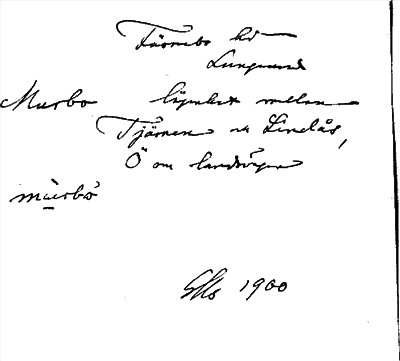 Färnebo hd
Lungsund
Murbo lägenhet mellan
Tjärnen och Lindås,
Ö om landsvägen
mùrbò
1900